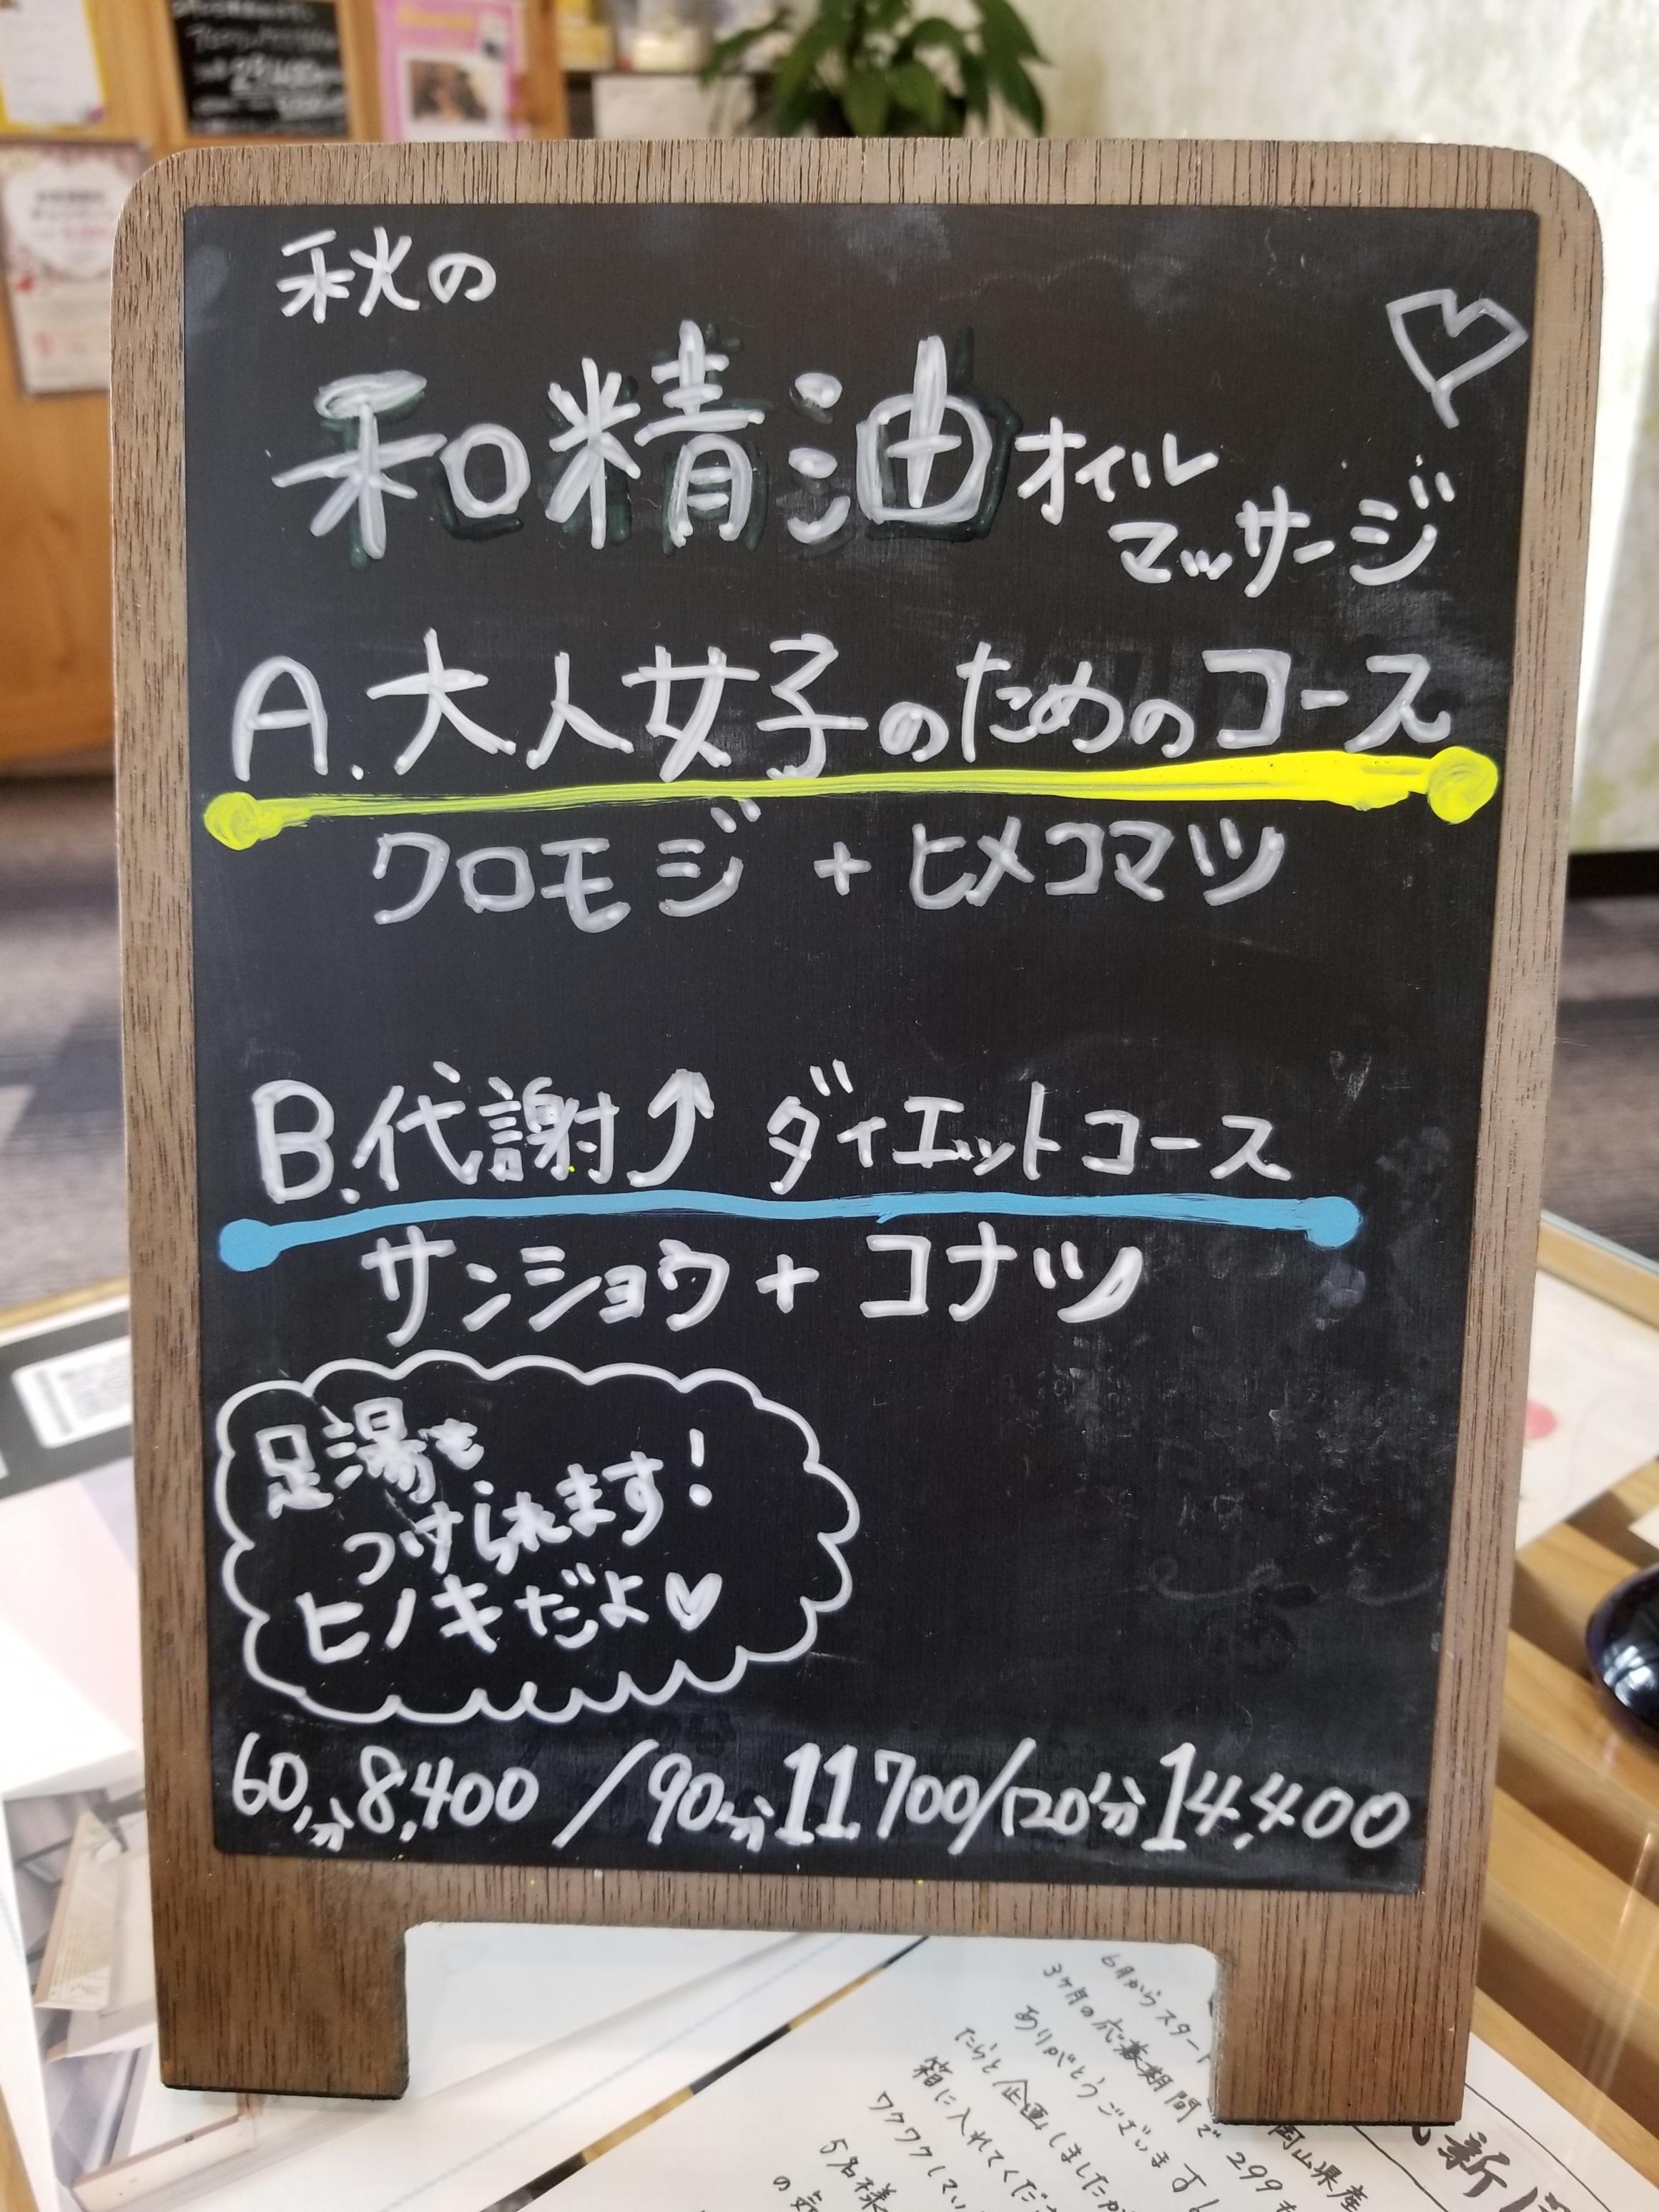 秋の
和精油オイル
マッサージ
A.大人女子のためのコース
クロモジ + ヒメコマツ
B.代謝↑ ダイエットコース
サンショウ + コナツ
足湯を
つけられます!
ヒノキだよ♥
60分8,400 / 90分11700/120分14,400
6月からスタート
3ヶ月の応募期間で299
ありがとうございます
たらと企画しましたが
箱に入れてくださ
ワクワクしてい
5名様
岡山県産
新